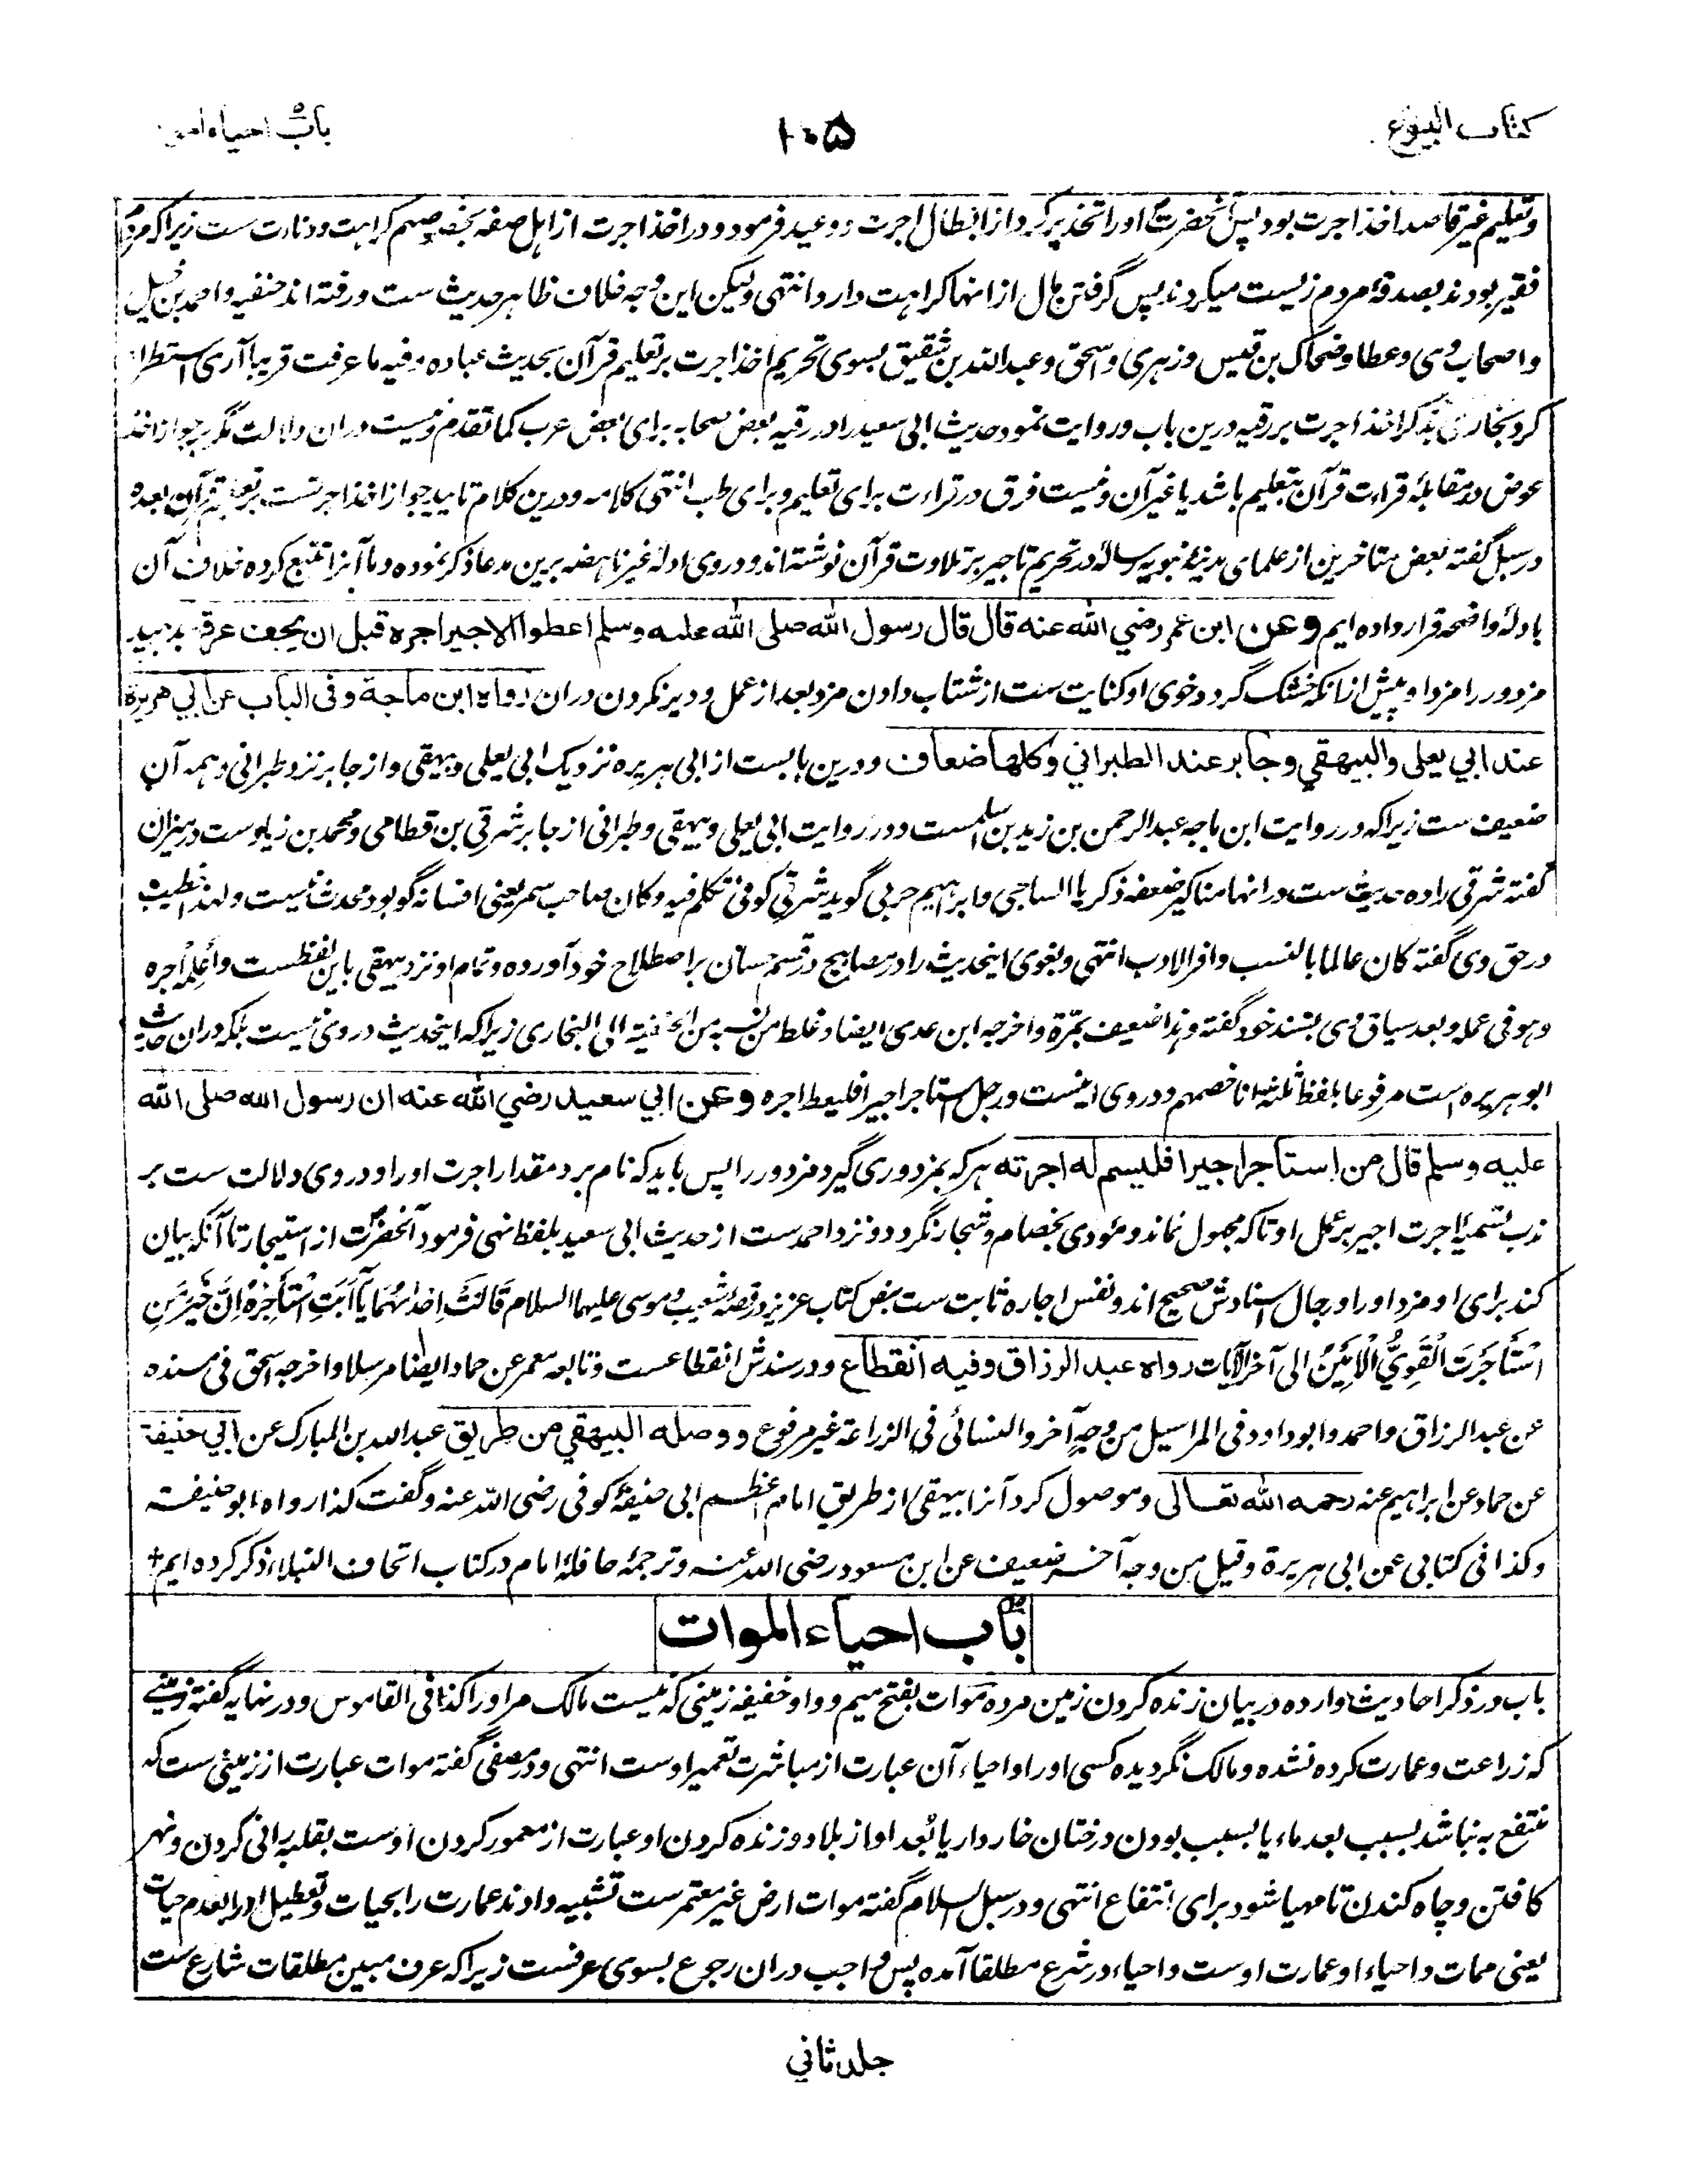 كتاب البيوع
۱۰۵
باب احياء
وتعلیم غیر قاصد اخذ اجرت بود پس آنحضرت او را تحذیر کرد از ابطال اجرت و وعید فرمود و در اخذ اجرت از اہل صفہ بخصوصہم کراہت و دنارت ست زیراکہ مردم
فقیر بودند بصدقۂ مردم زیست میکردند پس گرفتن مال از انہا کراہت دارد انتہی ولیکن این وجہ خلاف ظاہر حدیث ست و رفتہ اند حنفیہ و احمد بن حنبل
و اصحاب وی و عطا و ضحاک بن قیس و زہری و اسحق و عبداللہ بن شقیق بسوی تحریم اخذ اجرت بر تعلیم قرآن بحدیث عبادہ وفیہ ما عرفت قریبا آری استطراد
کرد بخاری بذکر اخذ اجرت بر رقیہ درین باب و روایت نمود حدیث ابی سعید را در رقیہ بعض صحابہ برای بعض عرب کما تقدم و نیست دران دلالت مگر بر جواز اخذ
عوض در مقابلۂ قراءت قرآن بتعلیم باشد یا غیر آن و نیست فرق در قراءت برای تعلیم و برای طب انتہی کلامہ و درین کلام تایید جواز اخذ اجرتست بر تعلیم قرآن بعدہ
در سبل گفتہ بعض متاخرین از علمای مدینۂ نبویہ رسالہ در تحریم تاجیر بر تلاوت قرآن نوشتہ اند و در وی ادلۂ غیر ناہضہ برین مدعا ذکر نمودہ و ما آنرا تتبع کردہ خلاف آن
بادلۂ واضحہ قرار دادہ ایم وعن ابن عمر رضي الله عنه قال قال رسول الله صلى الله عليه وسلم اعطوا الاجير اجره قبل ان يجف عرقه بدہید
مزدور را مزد او پیش از انکہ خشک گردد خوی او کنایت ست از شتاب دادن مزد بعد از عمل و دیر نکردن دران رواه ابن ماجة وفى الباب عن ابي هريرة
عند ابي يعلى والبيهقي وجابر عند الطبراني وكلها ضعاف و درین بابست از ابی ہریرہ نزدیک ابی یعلی و بیہقی و از جابر نزد طبرانی و ہمہ آن
ضعیف ست زیراکہ در روایت ابن ماجہ عبدالرحمن بن زید بن اسلمست و در روایت ابی یعلی و بیہقی و طبرانی از جابر شرقی بن قطامی و محمد بن زیادست در میزان
گفتہ شرقی را دہ حدیث ست در انہا مناکیر ضعفہ زکریا الساجی و ابراہیم حربی گوید شرقی کوفی تکلم فیہ وکان صاحب سمر یعنی افسانہ گو بود محدث نیست ولہذا خطیب
در حق وی گفتہ کان عالما بالنسب وافر الادب انتہی و بغوی اینحدیث را در مصابیح در قسم حسان بر اصطلاح خود آوردہ و تمام او نزد بیہقی باین لفظست واعلمہ اجرہ
وہو فی عملہ و بعد سیاق وی بسند خود گفتہ وہذا ضعیف بمرۃ واخرجہ ابن عدی ایضا و غلط من نسبہ من الحنفیۃ الی البخاری زیراکہ اینحدیث در وی نیست بلکہ دران حدیث
ابو ہریرہ است مرفوعا بلفظ ثلثۃ انا خصمہم و در وی اینست ورجل استاجر اجیرا فلم یعط اجرہ وعن ابي سعيد رضي الله عنه ان رسول الله صلى الله
عليه وسلم قال من استاجر اجيرا فليسم له اجرته ہر کہ بمزدوری گیرد مزدور را پس باید کہ نام برد مقدار اجرت او را و در وی دلالت ست بر
ندب تسمیۂ اجرت اجیر بر عمل او تا کہ مجہول نماند و مؤدی بخصام و شجار نگردد و نزد احمدست از حدیث ابی سعید بلفظ نہی فرمود آنحضرت از استیجار تا آنکہ بیان
کند برای او مزد او را و رجال اسنادش صحیح اند و نفس اجارہ ثابت ست بنص کتاب عزیز در قصۂ شعیب و موسی علیہما السلام قَالَتْ إِحْدَاهُمَا يَا أَبَتِ اسْتَأْجِرْهُ إِنَّ خَيْرَ مَنِ
اسْتَأْجَرْتَ الْقَوِيُّ الْأَمِينُ الی آخر الآیات رواه عبد الرزاق وفيه انقطاع و در سندش انقطاعست و تابعہ معمر عن حماد ایضا مرسلا واخرجہ اسحق فی مسندہ
عن عبدالرزاق واحمد وابوداود فی المراسیل من وجہ آخر والنسائی فی الزراعۃ غیر مرفوع ووصله البيهقي من طريق عبد الله بن المبارك عن ابي حنيفة
عن حماد عن ابراہیم عنہ رحمه الله تعالى و موصول کرد آنرا بیہقی از طریق امام اعظم ابی حنیفۂ کوفی رضی اللہ عنہ و گفت کذا رواہ ابوحنیفۃ
وکذا فی کتابی عن ابی ہریرۃ وقیل من وجہ آخر ضعیف عن ابن مسعود رضی اللہ عنہ و ترجمۂ حافلۂ امام در کتاب اتحاف النبلاء ذکر کردہ ایم +
باب احياء الموات
باب در ذکر احادیث واردہ در بیان زندہ کردن زمین مردہ موات بفتح میم و واو خفیفہ زمینی کہ نیست مالک مر او را کذا فی القاموس و در نہایہ گفتہ زمینے
کہ زراعت و عمارت کردہ نشدہ و مالک نگردیدہ کسی او را و احیاء آن عبارت از مباشرت تعمیر اوست انتہی و در مصفی گفتہ موات عبارت از زمینی ست کہ
منتفع بہ نباشد بسبب بعد ماء یا بسبب بودن درختان خاردار یا بُعد او از بلاد و زندہ کردن او عبارت از معمور کردن اوست بقلبہ رانی کردن و نہر
کافتن و چاہ کندن تا مہیا شود برای انتفاع انتہی و در سبل السلام گفتہ موات ارض غیر معتمرست تشبیہ دادند عمارت را بحیات و تعطیل او را بعدم حیات
یعنی ممات و احیاء او عمارت اوست و احیاء در شرع مطلقا آمدہ پس واجب دران رجوع بسوی عرفست زیراکہ عرف مبین مطلقات شارع ست
جلد ثاني